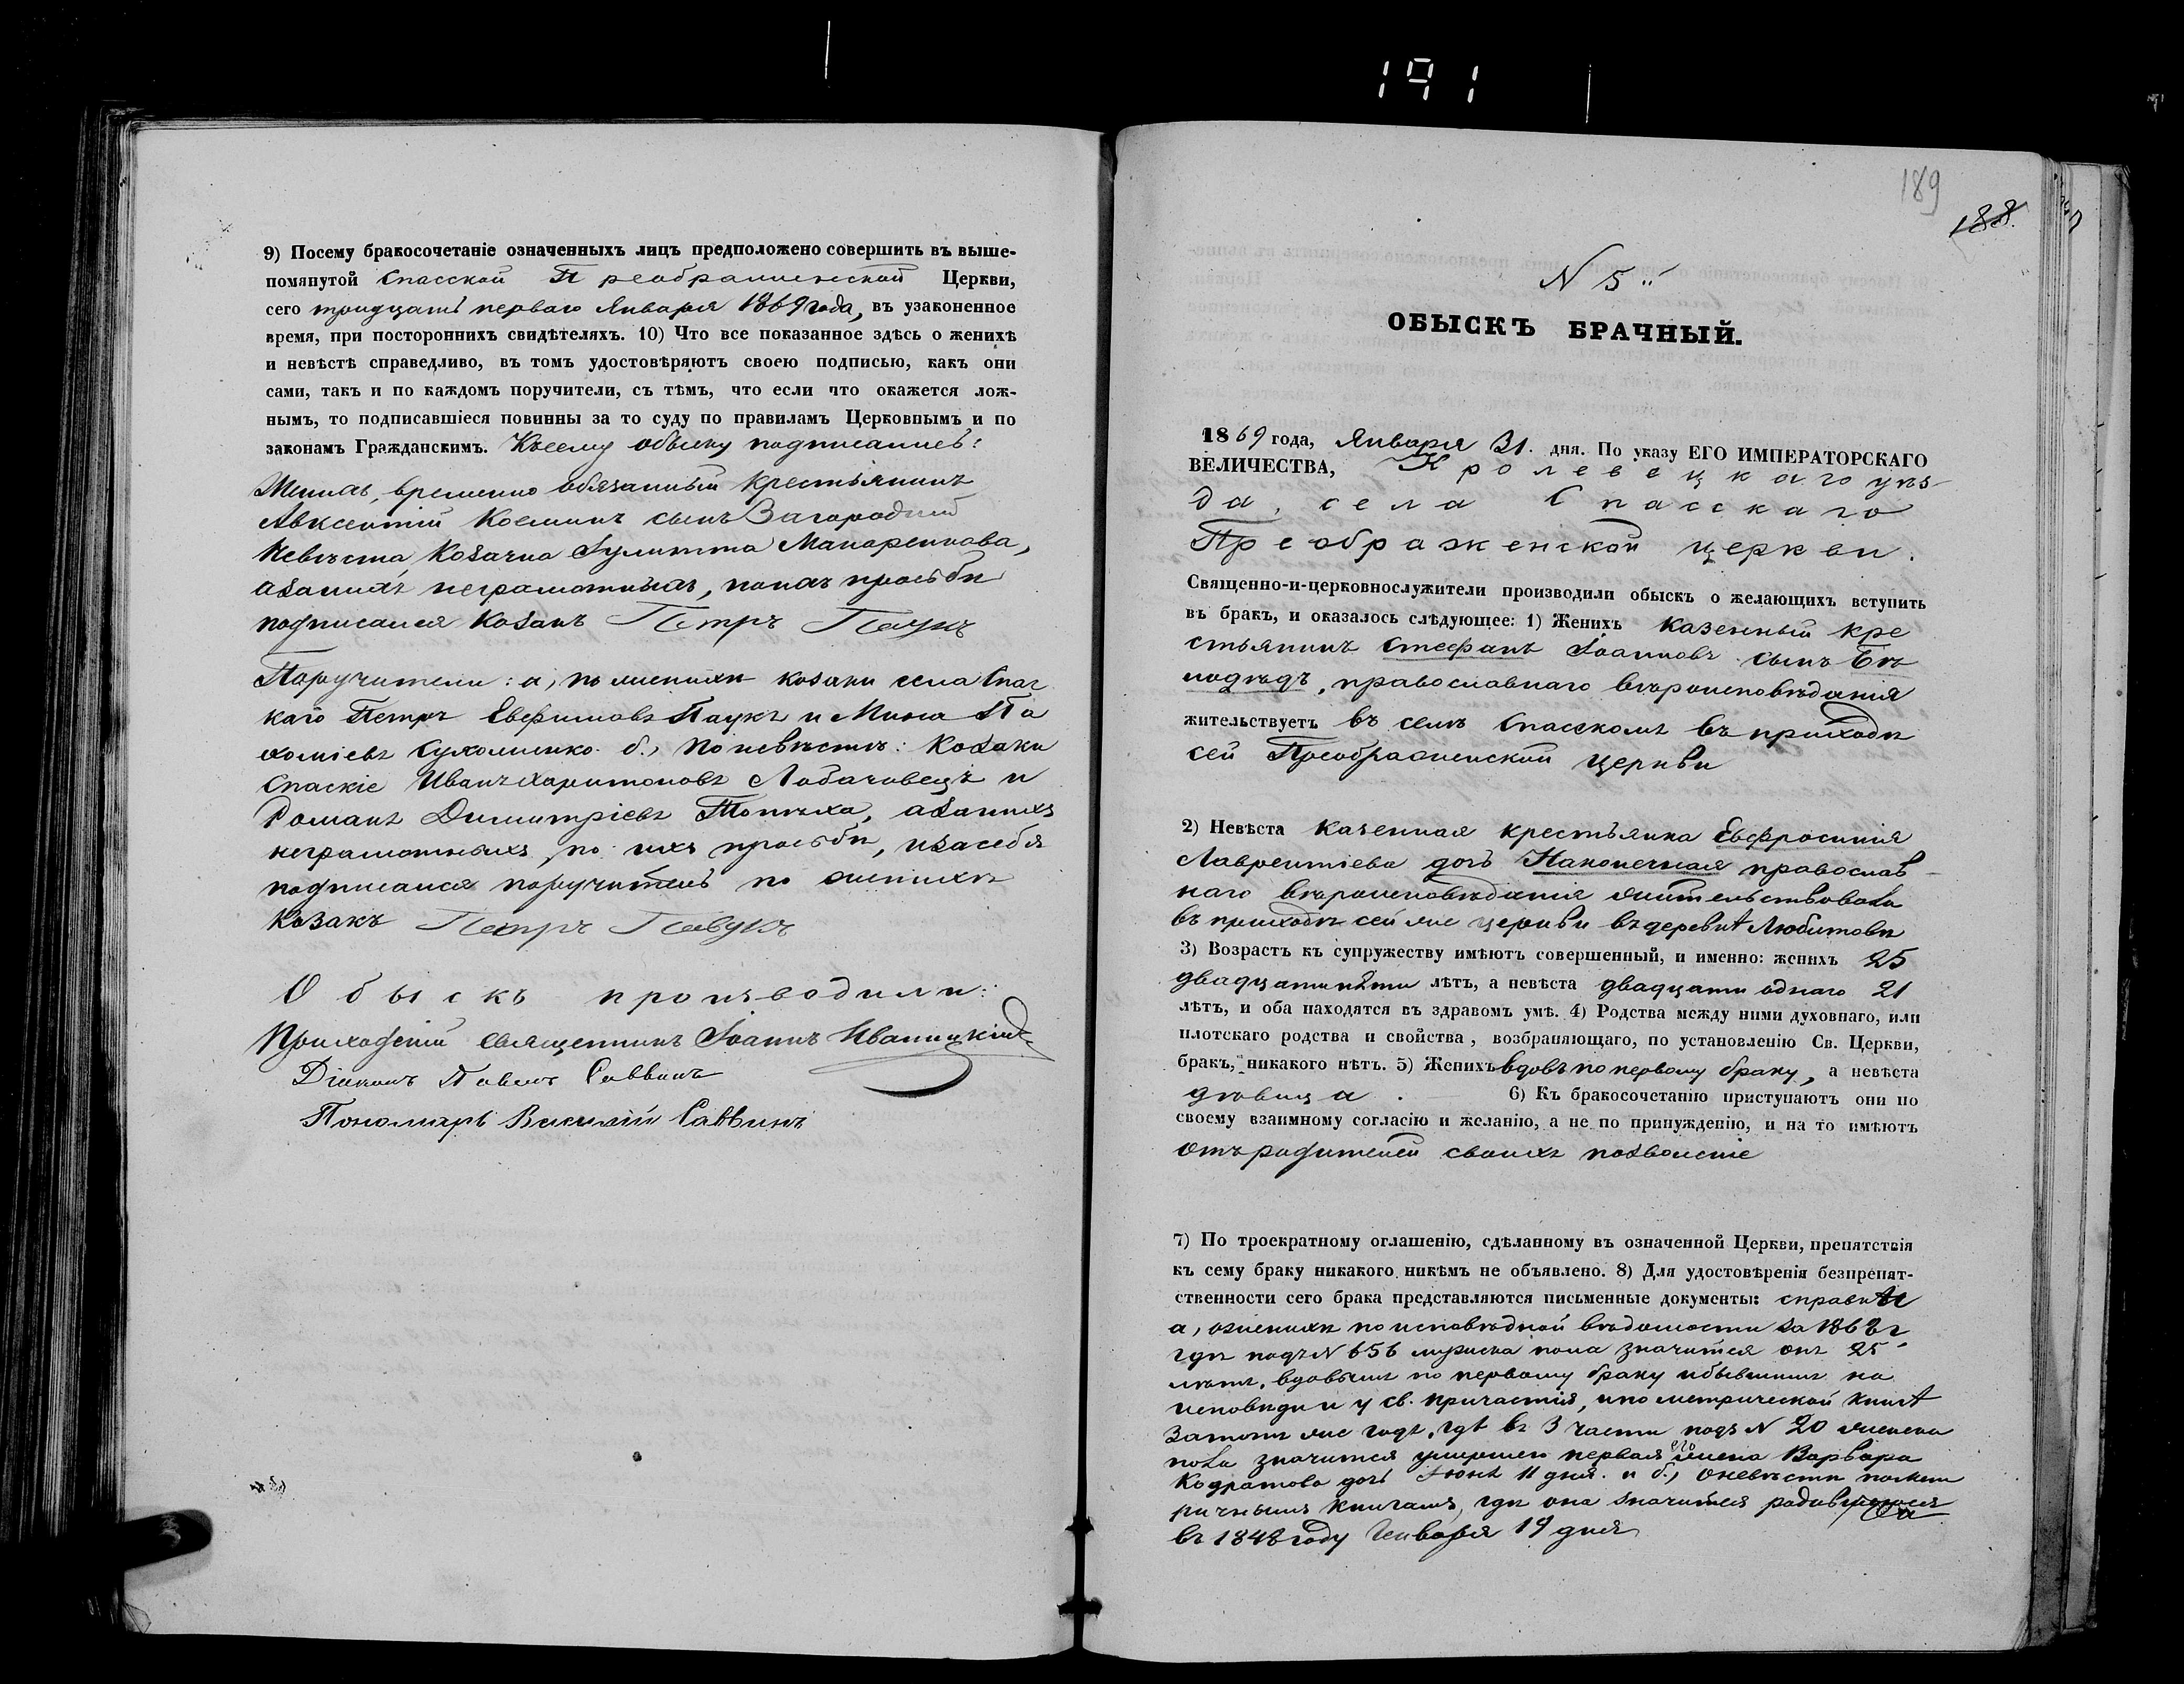 191
9) Посему бракосочетаніе означенныхъ лицъ предположено совершить въ выше-
помянутой Спасской Преображенской Церкви,
сего тридцать перваго Января 1869 года, въ узаконенное
время, при постороннихъ свидѣтеляхъ. 10) Что все показанное здѣсь о женихѣ
и невѣстѣ справедливо, въ томъ удостовѣряютъ своею подписью, какъ они
сами, такъ и по каждомъ поручители, съ тѣмъ, что если что окажется лож-
нымъ, то подписавшіеся повинны за то суду по правиламъ Церковнымъ и по
законамъ Гражданскимъ. Къ сему обыску подписались:
Женихъ, временно обязанный крестьянинъ
Авксентій Космин сынъ Загородній
Невѣста, козачка Іулитта Макаренкова,
а за нихъ неграмотныхъ, по ихъ просьбѣ
подписался козакъ Петръ Паукъ
Поручители: а, по женихѣ козаки села Спас
каго Петръ Евфимовъ Паукъ и Мина Па
хоміевъ Сухомлинко б., по невѣстѣ: козаки
Спаскіе Иванъ Харитоновъ Лобачовецъ и
Романъ Димитріевъ Топчиха, а за нихъ
неграмотныхъ, по ихъ просьбѣ, и за себя
подписался поручитель по женихѣ
козакъ Петръ Павукъ
Обыскъ производили:
Приходскій священникъ Іоаннъ Иваницкій
Діаконъ Павелъ Саввинъ
Пономарь Василій Саввинъ
189
188.
N 5
ОБЫСКЪ БРАЧНЫЙ.
1869 года, Января 31. дня. По указу ЕГО ИМПЕРАТОРСКАГО
ВЕЛИЧЕСТВА, Кролевецкаго уѣз-
да, села Спасскаго
Преображенской церкви.
Священно-и-церковнослужители производили обыскъ о желающихъ вступить
въ бракъ, и оказалось слѣдующее: 1) Женихъ казенный кре
стьянинъ Стефанъ Іоанновъ сынъ Бѣ
лодѣдъ, православнаго вѣроисповѣданія
жительствуетъ въ селѣ Спасскомъ въ приходѣ
сей Преображенской церкви
2) Невѣста казенная крестьянка Евфросинія
Лаврентіева дочь Наконечная православ-
наго вѣроисповѣданія жительствовала
въ приходѣ сей же церкви въ деревнѣ Любитовѣ
3) Возрастъ къ супружеству имѣютъ совершенный, и именно: женихъ 25
двадцати пяти лѣтъ, а невѣста двадцати однаго 21
лѣтъ, и оба находятся въ здравомъ умѣ. 4) Родства между ними духовнаго, или
плотскаго родства и свойства, возбраняющаго, по установленію Св. Церкви,
бракъ, никакого нѣтъ. 5) Женихъ вдовъ по первому браку, а невѣста
дѣвица. 6) Къ бракосочетанію приступаютъ они по
своему взаимному согласію и желанію, а не по принужденію, и на то имѣютъ
отъ родителей своихъ позволеніе
7) По троекратному оглашенію, сдѣланному въ означенной Церкви, препятствія
къ сему браку никакого никѣмъ не объявлено. 8) Для удостовѣренія безпрепят-
ственности сего брака представляются письменные документы: справки
а, о женихѣ по исповѣдной вѣдомости за 1868 г
гдѣ подъ N 656 мужска пола значится онъ 25
лѣтъ, вдовымъ по первому браку и бывшимъ на
исповѣди и у св. причастія, и по метрической книгѣ
за тотъ же годъ, гдѣ въ 3 части подъ N 20 женска
пола значится умершею первая его жена Варвара
Кодратова дочь Іюня 11 дня. и б., о невѣстѣ по метри
ричнымъ книгамъ, гдѣ она значится родившеюся
въ 1848 году Генваря 19 дня